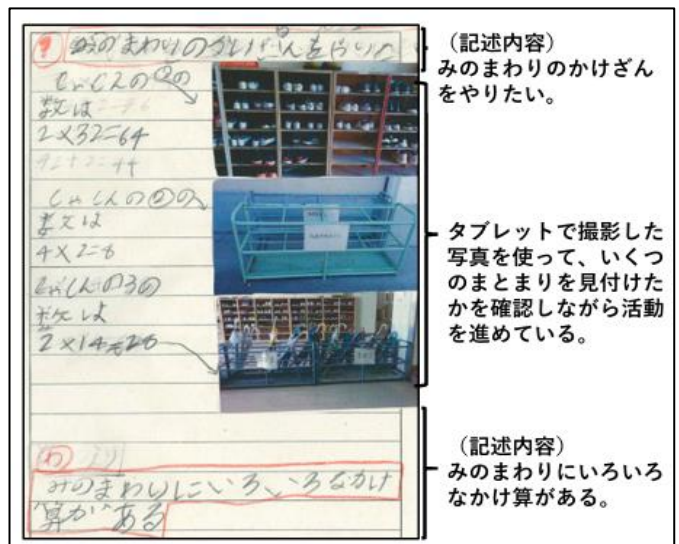 ? みのまわりのかけざんをやりたい
しゃしんの①の
数は
2×32=64
しゃしんの②の
数は
4×2=8
しゃしんの3の
数は
2×14=28
わ
みのまわりにいろいろなかけ
算がある
(記述内容)
みのまわりのかけざん
をやりたい。
タブレットで撮影した
写真を使って、いくつ
のまとまりを見付けた
かを確認しながら活動
を進めている。
(記述内容)
みのまわりにいろいろ
なかけ算がある。